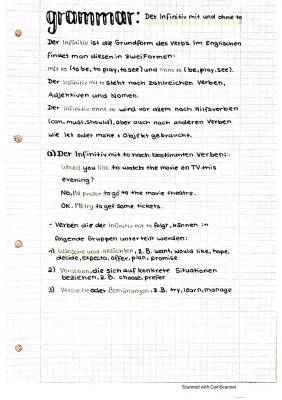 grammar: Der Infinitiv mit und ohne to
Der Infinitiv ist die Grundform des Verbs. Im Englischen
findet man diesen in zwei Formen:
mit to (to be, to play, to see) und ohne to (be, play, see).
Der Infinitiv mit to steht nach zahlreichen Verben,
Adjektiven und Nomen.
Der Infinitiv ohne to wird vor allem nach Hilfsverben
(can, must, should), aber auch nach anderen Verben
wie let oder make + Objekt gebraucht.
a) Der Infinitiv mit to nach bestimmten Verben:
Would you like to watch the movie on TV this
evening?
No, I'd prefer to go to the movie theatre.
OK. I'll try to get some tickets.
- Verben die der Infinitiv mit to folgt, können in
folgende Gruppen unterteilt werden:
1) Wünsche und Absichten, z.B. want, would like, hope,
decide, expect, offer, plan, promise
2) Vorlieben, die sich auf konkrete Situationen
beziehen, z.B. choose, prefer
3) Versuche oder Bemühungen, z.B. try, learn, manage
Scanned with CamScanner